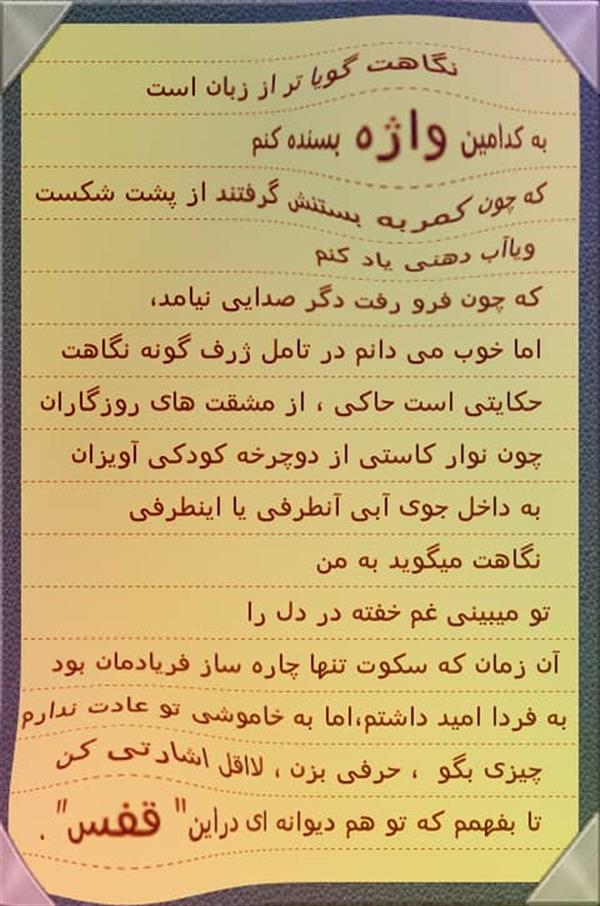 نگاهت گویا تر از زبان است
به کدامین واژه بسنده کنم
که چون کمر به بستنش گرفتند از پشت شکست
ویاآب دهنی یاد کنم
که چون فرو رفت دگر صدایی نیامد،
اما خوب می دانم در تامل ژرف گونه نگاهت
حکایتی است حاکی ، از مشقت های روزگاران
چون نوار کاستی از دوچرخه کودکی آویزان
به داخل جوی آبی آنطرفی یا اینطرفی
نگاهت میگوید به من
تو میبینی غم خفته در دل را
آن زمان که سکوت تنها چاره ساز فریادمان بود
به فردا امید داشتم،اما به خاموشی تو عادت ندارم
چیزی بگو ، حرفی بزن ، لااقل اشارتی کن
تا بفهمم که تو هم دیوانه ای دراین" قفس" .